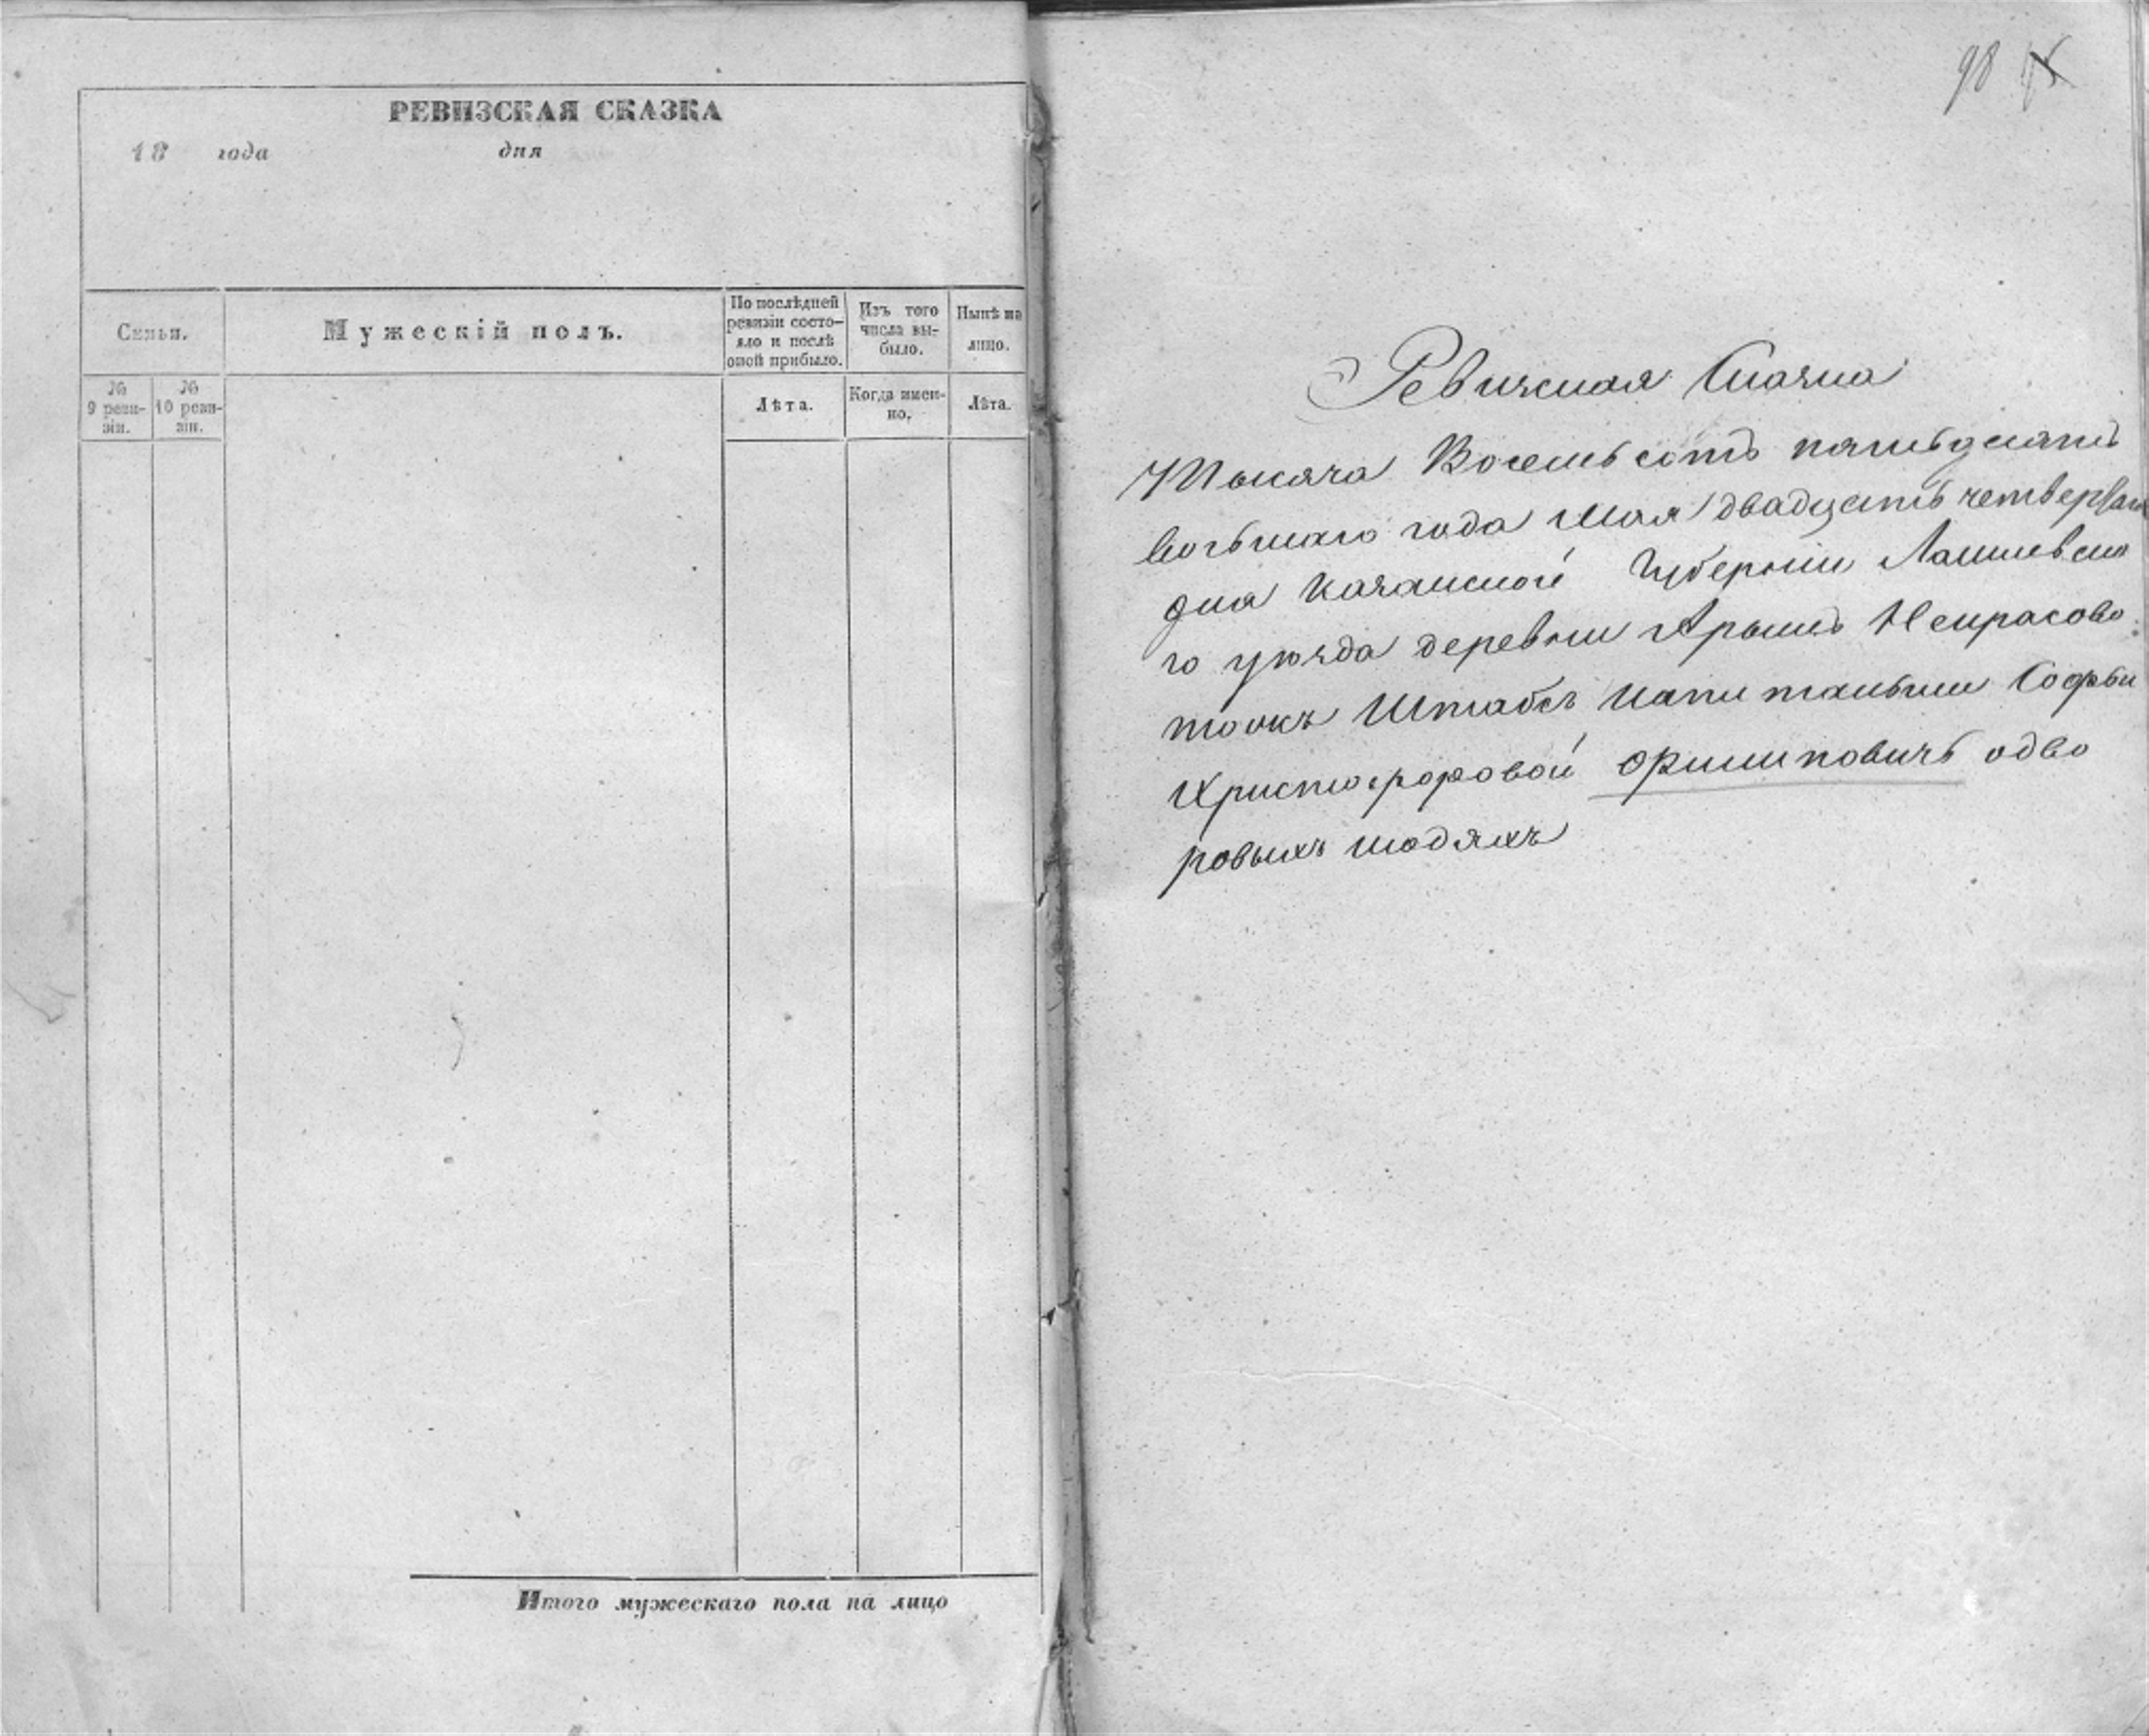 РЕВИЗСКАЯ СКАЗКА
18 года дня
Семьи.
Мужескій полъ.
По послѣдней ревизіи состо-
яло и послѣ оной прибыло.
Изъ того числа вы-
было.
Нынѣ на лицо.
№ 9 реви-
зіи.
№ 10 реви-
зіи.
Лѣта.
Когда имен-
но.
Лѣта.
Итого мужескаго пола на лицо
98
Ревижская Сказка
Тысяча Восемьсотъ пятьдесятъ
восьмаго года Мая двадцать четвертаго
дня Казанской Губерніи Лаишевска
го уѣзда деревни Арышъ Некрасово
тожъ Штабсъ Капитанши Софьи
Христофоровой Филиповичь о дво
ровыхъ людяхъ